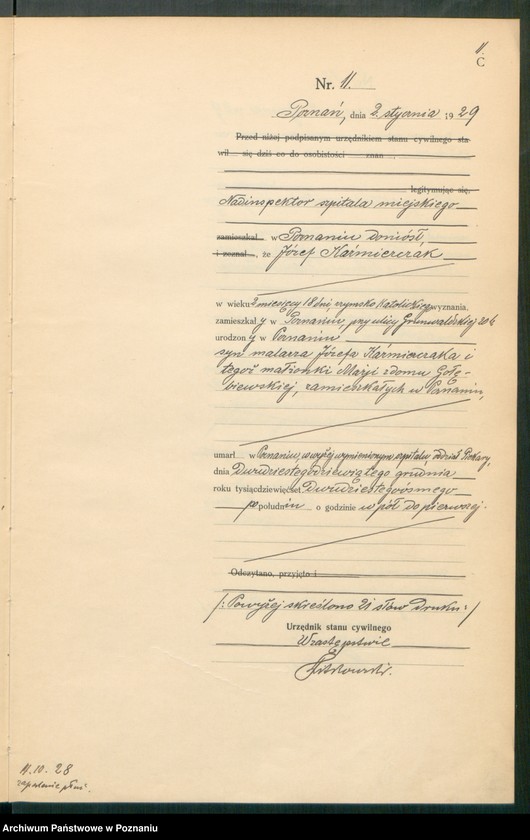 11.
C
Nr. 11.
Poznań, dnia 2. stycznia 1929
Przed niżej podpisanym urzędnikiem stanu cywilnego sta-
wił się dziś co do osobistości znan
legitymując się,
Nadinspektor szpitala miejskiego
zamieszkał w Poznaniu doniósł,
i zeznał, że Józef Kaźmierczak
w wieku 2 miesięcy 18 dni, rzymsko katolickiego wyznania,
zamieszkały w Poznaniu, przy ulicy Grunwaldzkiej 20b
urodzony w Poznaniu
syn malarza Józefa Kaźmierczaka i
tegoż małżonki Marji z domu Gołę-
biewskiej, zamieszkałych w Poznaniu,
umarł w Poznaniu, w wyżej wymienionym szpitalu, oddział
dnia Dwudziestegodziewiątego grudnia
roku tysiącdziewięćset Dwudziestegoósmego
po południu o godzinie w pół do pierwszej.
Odczytano, przyjęto i
/: Powyżej skreślono 21 słów druku :/
Urzędnik stanu cywilnego
W zastępstwie
11.10.28
zapalenie płuc.
Archiwum Państwowe w Poznaniu